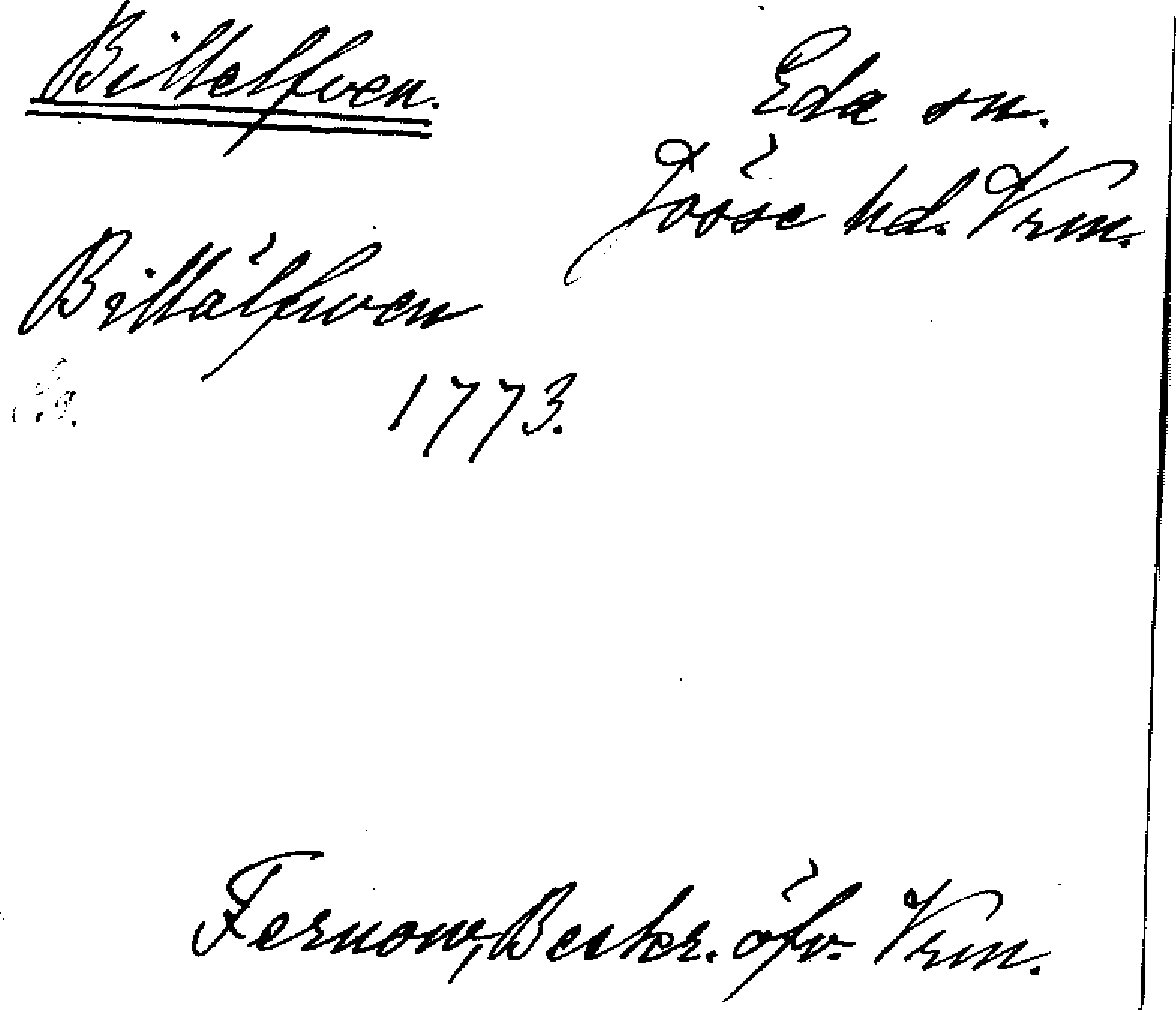 Billelfven.
Eda sn.
Jösse hd. Vrm.
Billälfven
1773.
Fernow, Beskr. öfv. Vrm.